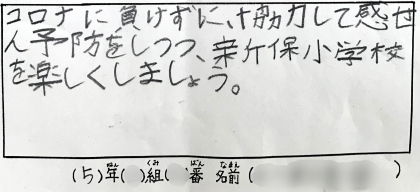 コロナに負けずに、協力して感せ
ん予防をしつつ、来ケ保小学校
を楽しくしましょう。
(5)年( )組( )番 名前( )